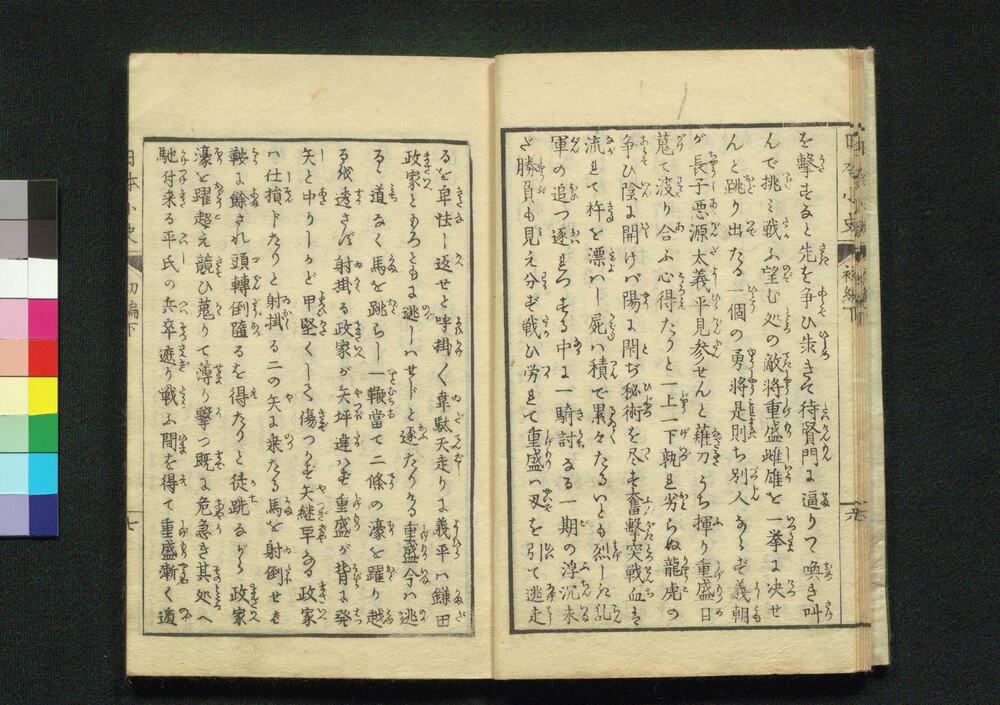 を撃するると先を争ひ歩きて待賢門に逼りて喚き叫
んで挑み戦ふ望む処の敵将重盛雌雄を一挙に决せ
んと跳り出たる一個の勇将是則ち別人ならず義朝
が長子悪源太義平見参せんと薙刀うち揮り重盛目
蒐て渡り合ふ心得たりと一上一下孰れ劣らぬ龍虎の
争ひ陰に開けバ陽に閇ぢ秘術を尽す奮撃突戦血は
流れて杵を漂ハし屍ハ積で累々たるいとも烈しき乱
軍の追つ逐れつする中に一騎討なる一期の浮沉未
だ勝負も見え分ず戦ひ労れて重盛ハ刄を引て逃走
るを卑怯し返せと呼掛く韋駄天走りに義平ハ鎌田
政家ともろともに逃しハせじと逐たりける重盛今ハ逃
るゝ道なく馬を跳らし一鞭當て二條の濠を躍り越
るを透さず射掛る政家が矢坪違ハず重盛が背に発
矢と中りしかど甲堅くして傷つかず矢継早なる政家
ハ仕損じたりと射掛る二の矢に乗たる馬を射倒せば
鞍に餘され頭轉倒墮るを得たりと徒跣ながら政家
濠を躍超え競ひ蒐りて薄り撃つ既に危急き其処へ
馳付来る平氏の兵卒遮り戦ふ間を得て重盛漸く遁
日本小史
初編下
七